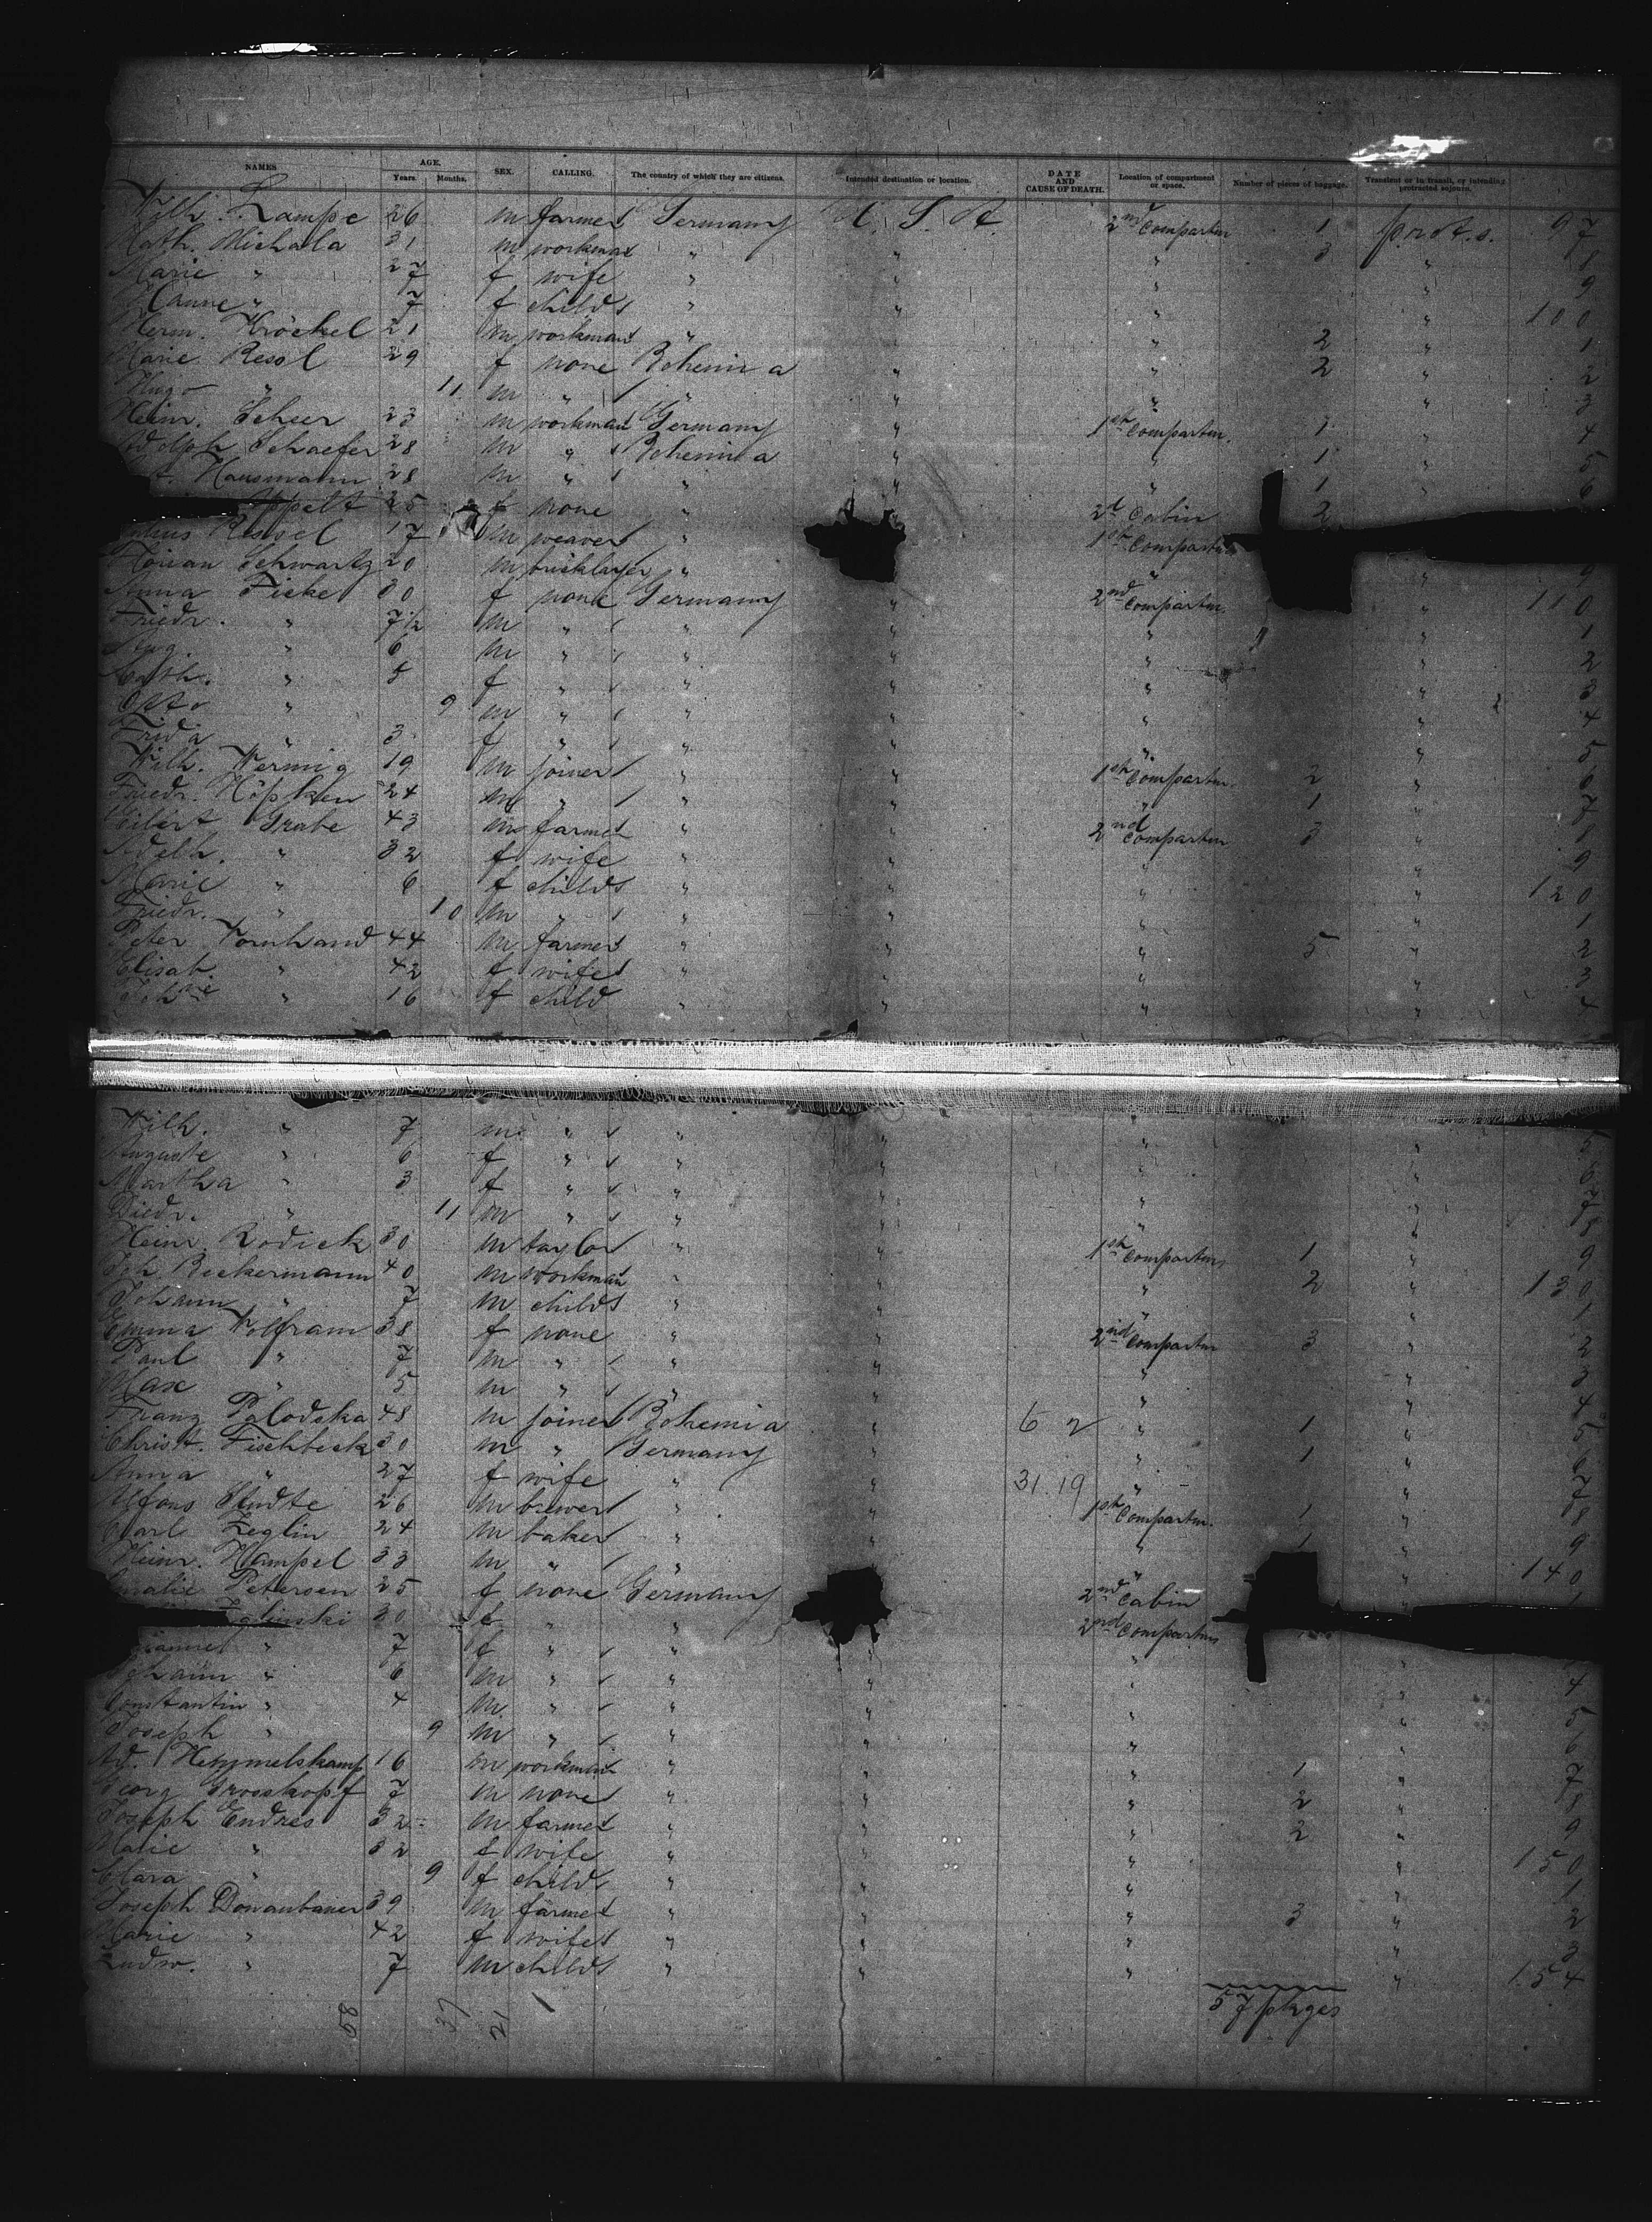 NAMES AGE. Years. Months. SEX. CALLING. The country of which they are citizens. Intended destination or location. DATE AND CAUSE OF DEATH. Location of compartment or space. Number of pieces of baggage. Transient or in transit, or intending protracted sojourn.
Wilh. Lampe 26 m farmer Germany U. S. A. 2nd Compartm 1 prot. s. 97
Math. Michala 31 m workman " " " 3 " 8
Marie " 27 f wife " " " " 9
Hanne " 7 f childs " " " " 100
Herm. Kröckel 21 m workman " " " 2 " 1
Marie Resol 29 f none Bohemia " " 2 " 2
Hugo " 11 m " " " " " 3
Heinr. Scheer 23 m workman Germany " 1st Compartm. 1 " 4
Adolph Schaefer 28 m " Bohemia " " 1 " 5
Hausmann 28 m " " " " 1 " 6
Appelt 25 f none " 2d Cabin 2
Ressel 17 m weaver " 1st Compartm
Florian Schwartz 20 m bricklayer " " " 9
Anna Ficke 30 f none Germany " 2nd Compartm. " 110
Friedr. " 7½ m " " " " " 1
Aug. " 6 m " " " " " 2
Cath. " 5 f " " " " " 3
Otto " 9 m " " " " " 4
Frida " 3 f " " " " " 5
Wilh. Wermig 19 m joiner " " 1st Compartm. 2 " 6
Friedr. Höpken 24 m " " " " 1 " 7
Eilert Grabe 43 m farmer " " 2nd Compartm 3 " 8
Adelh. " 32 f wife " " " " 9
Marie " 6 f childs " " " " 120
Friedr. " 10 m " " " " " 1
Peter Vornhand 44 m farmer " " " 5 " 2
Elisab. " 42 f wife " " " " 3
Johne " 16 f child " " " " 4
Wilh. " 7 m " " " " "
Auguste " 6 f " " " " " 5
Martha " 3 f " " " " " 6
Diedr. " 11 m " " " " " 7
Heinr. Rodick 30 m taylor " " 1st Compartm 1 " 9
Joh. Beckermann 40 m workman " " " 2 " 130
Johann " 7 m childs " " " " 1
Emma Wolfram 38 f none " " 2nd Compartm 3 " 2
Paul " 7 m " " " " " 3
Max " 5 m " " " " " 4
Franz Palodska 48 m joiner Bohemia " 6 2 " 1 " 5
Christ. Fischbeck 30 m " Germany " " 1 " 6
Anna " 27 f wife " " 31. 19 " " 7
Alfons Studte 26 m brewer " " 1st Compartm. 1 " 8
Carl Zeglin 24 m baker " " " 1 " 9
Heinr. Hampel 33 m " " " " 140
Amalie Petersen 25 f none Germany 2nd Cabin "
Zglinski 30 f " " 2nd Compartm
" 7 f " " " " "
Johann " 6 m " " " " " 4
Constantin " 4 m " " " " " 5
Joseph " 9 m " " " " " 6
Ad. Hemmelskamp 16 m workman " " " 1 " 7
Georg Grosskopf 7 m none " " " 2 " 8
Joseph Endres 32 m farmer " " " 2 " 9
Marie " 32 f wife " " " " 150
Clara " 9 f childs " " " " 1
Joseph Donaubauer 39 m farmer " " " 3 " 2
Marie " 42 f wife " " " " 3
Ludw. " 7 m childs " " " " 154
58 37 21 57 pkges